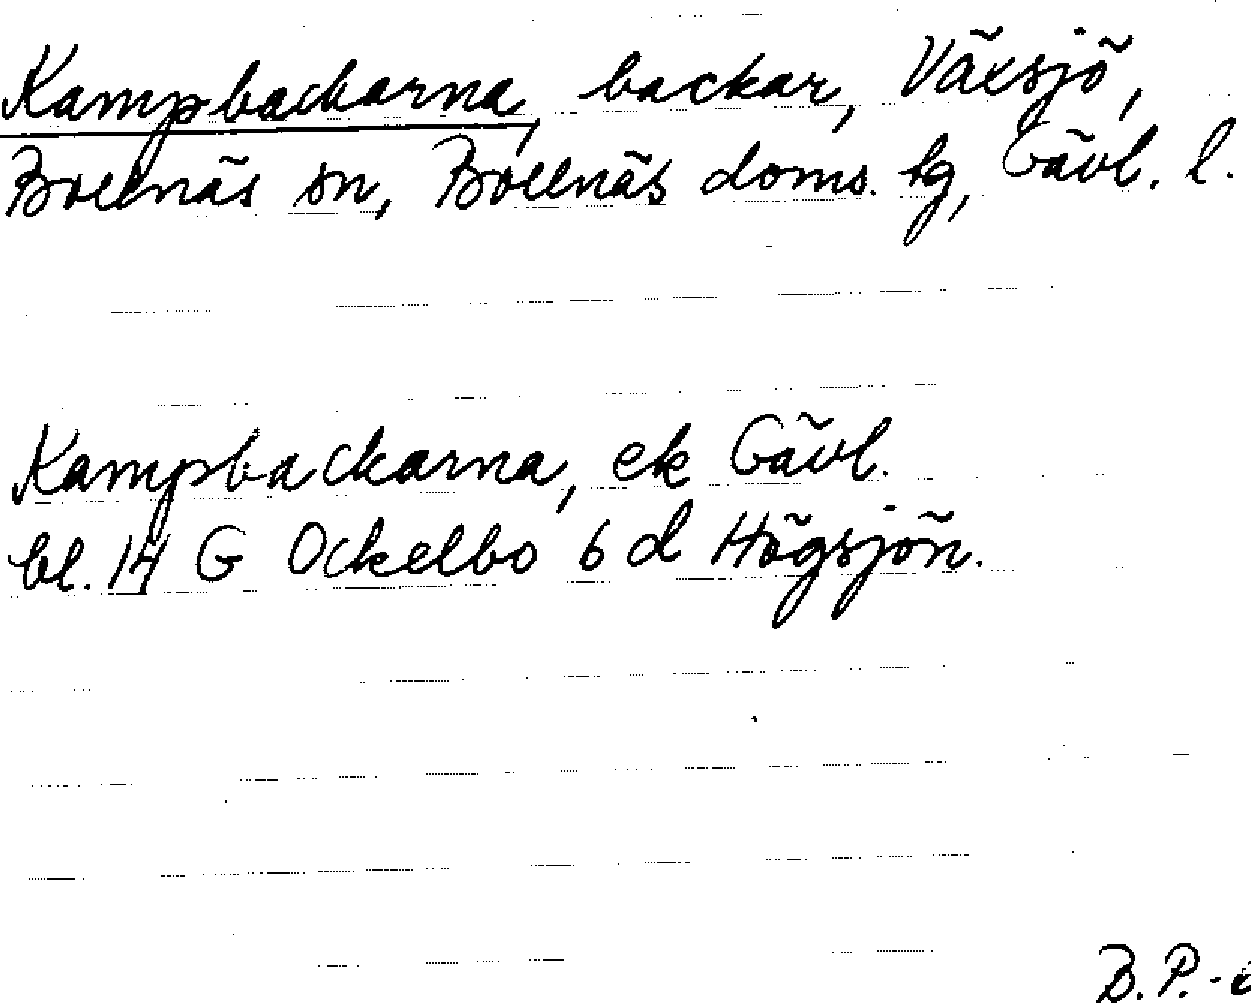 Kampbackarna, backar, Växsjö,
Bollnäs sn, Bollnäs doms. tg, Gävl. l.
Kampbackarna, ek Gävl.
bl. 14 G Ockelbo 6 d Högsjön.
B.P.-